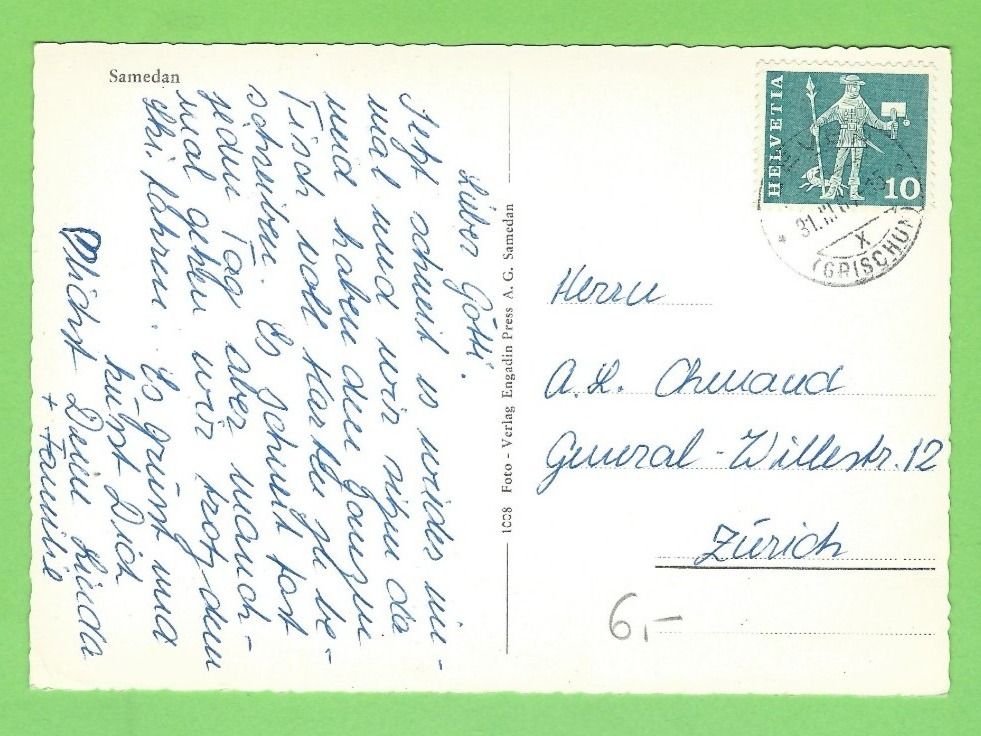 Samedan
Lieber Götti.
Jetzt schneit es wieder ein-
mal und wir sitzen da
und haben den ganzen
Tisch voll Karten zu be-
schreiben. Es schneit fast
jeden Tag aber manch-
mal gehen wir trotzdem
Ski fahren. Es grüsst und
küsst Dich
Dein
+ Familie
1008 Foto - Verlag Engadin Press A. G. Samedan
HELVETIA
10
31.III.
X
(GRISCHUN)
Herrn
A.K. Chmand
General-Willestr. 12
Zürich
6,-